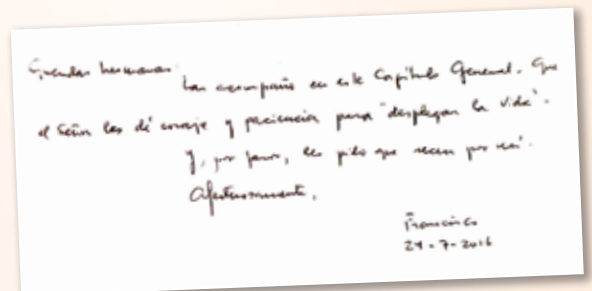 Queridas hermanas:
Las acompaño en este Capítulo General. Que
el Señor les dé coraje y paciencia para "desplegar la vida".
Y, por favor, les pido que recen por mí.
Afectuosamente,
Francisco
24-7-2016